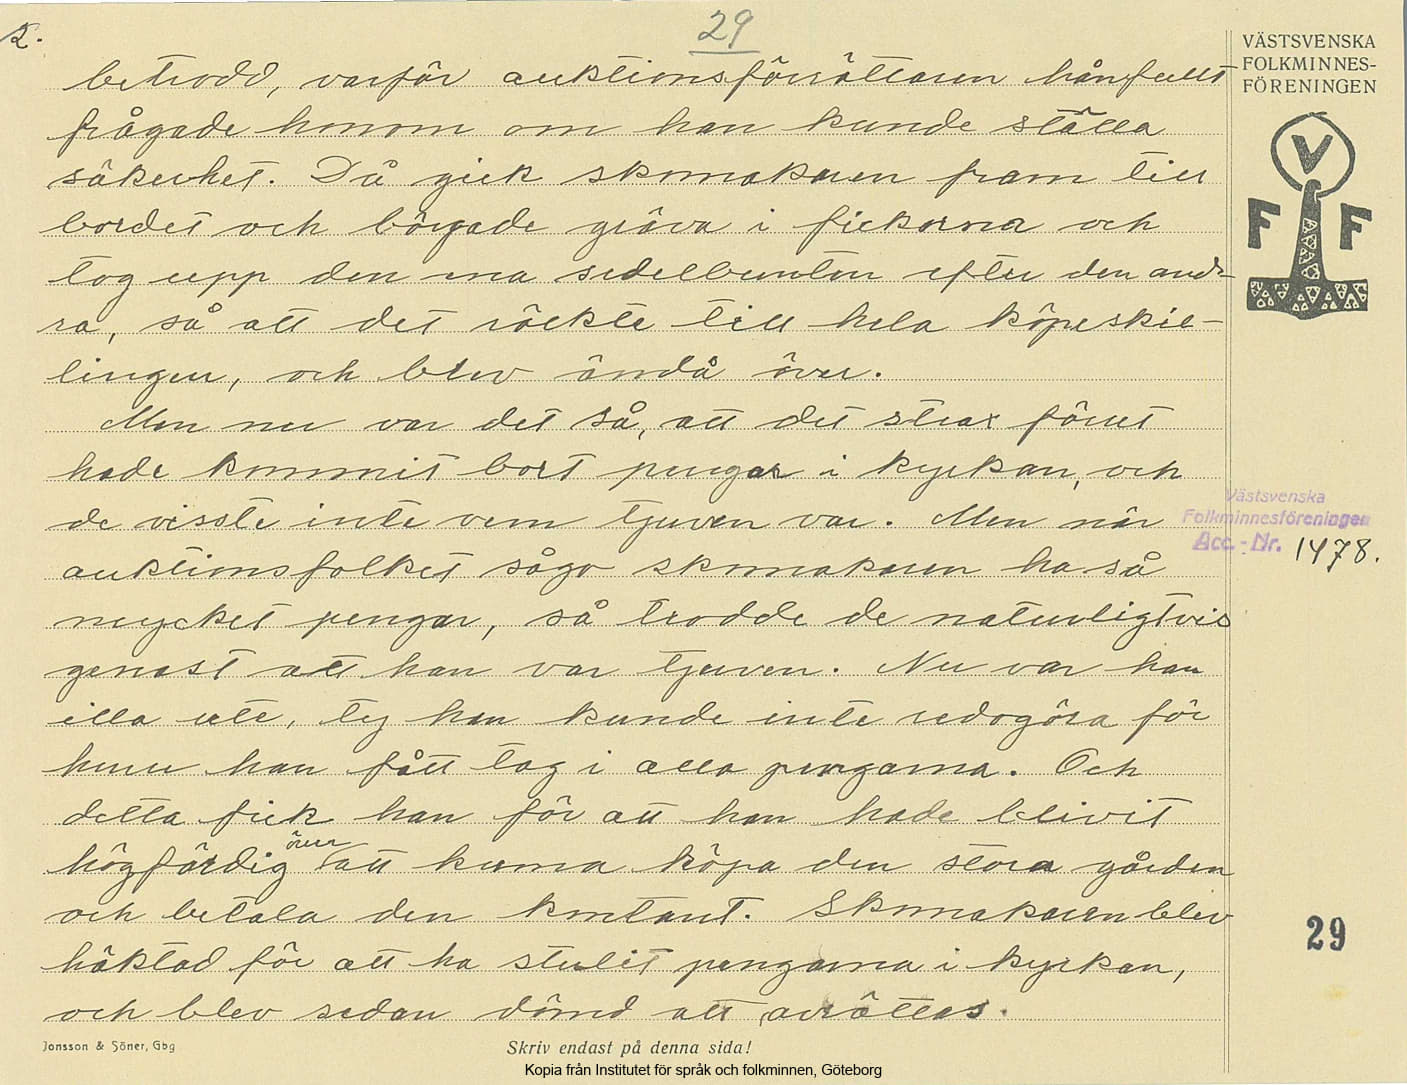 2.
29
VÄSTSVENSKA
FOLKMINNES-
FÖRENINGEN
V
F F
betrodd, varför auktionsförrättaren hånfullt
frågade honom om han kunde ställa
säkerhet. Då gick skomakaren fram till
bordet och började gräva i fickorna och
tog upp den ena sedelbunten efter den and-
ra, så att det räckte till hela köpeskil-
lingen, och blev ändå över.
Men nu var det så, att det strax förut
hade kommit bort pengar i kyrkan, och
de visste inte vem tjuven var. Men när
auktionsfolket sågo skomakaren ha så
mycket pengar, så trodde de naturligtvis
genast att han var tjuven. Nu var han
illa ute, ty han kunde inte redogöra för
huru han fått tag i alla pengarna. Och
detta fick han för att han hade blivit
högfärdig över att kunna köpa den stora gården
och betala den kontant. Skomakaren blev
häktad för att ha stulit pengarna i kyrkan,
och blev sedan dömd att avrättas.
Västsvenska
Folkminnesföreningen
Acc.-Nr. 1478.
29
Jonsson & Söner, Gbg
Skriv endast på denna sida!
Kopia från Institutet för språk och folkminnen, Göteborg